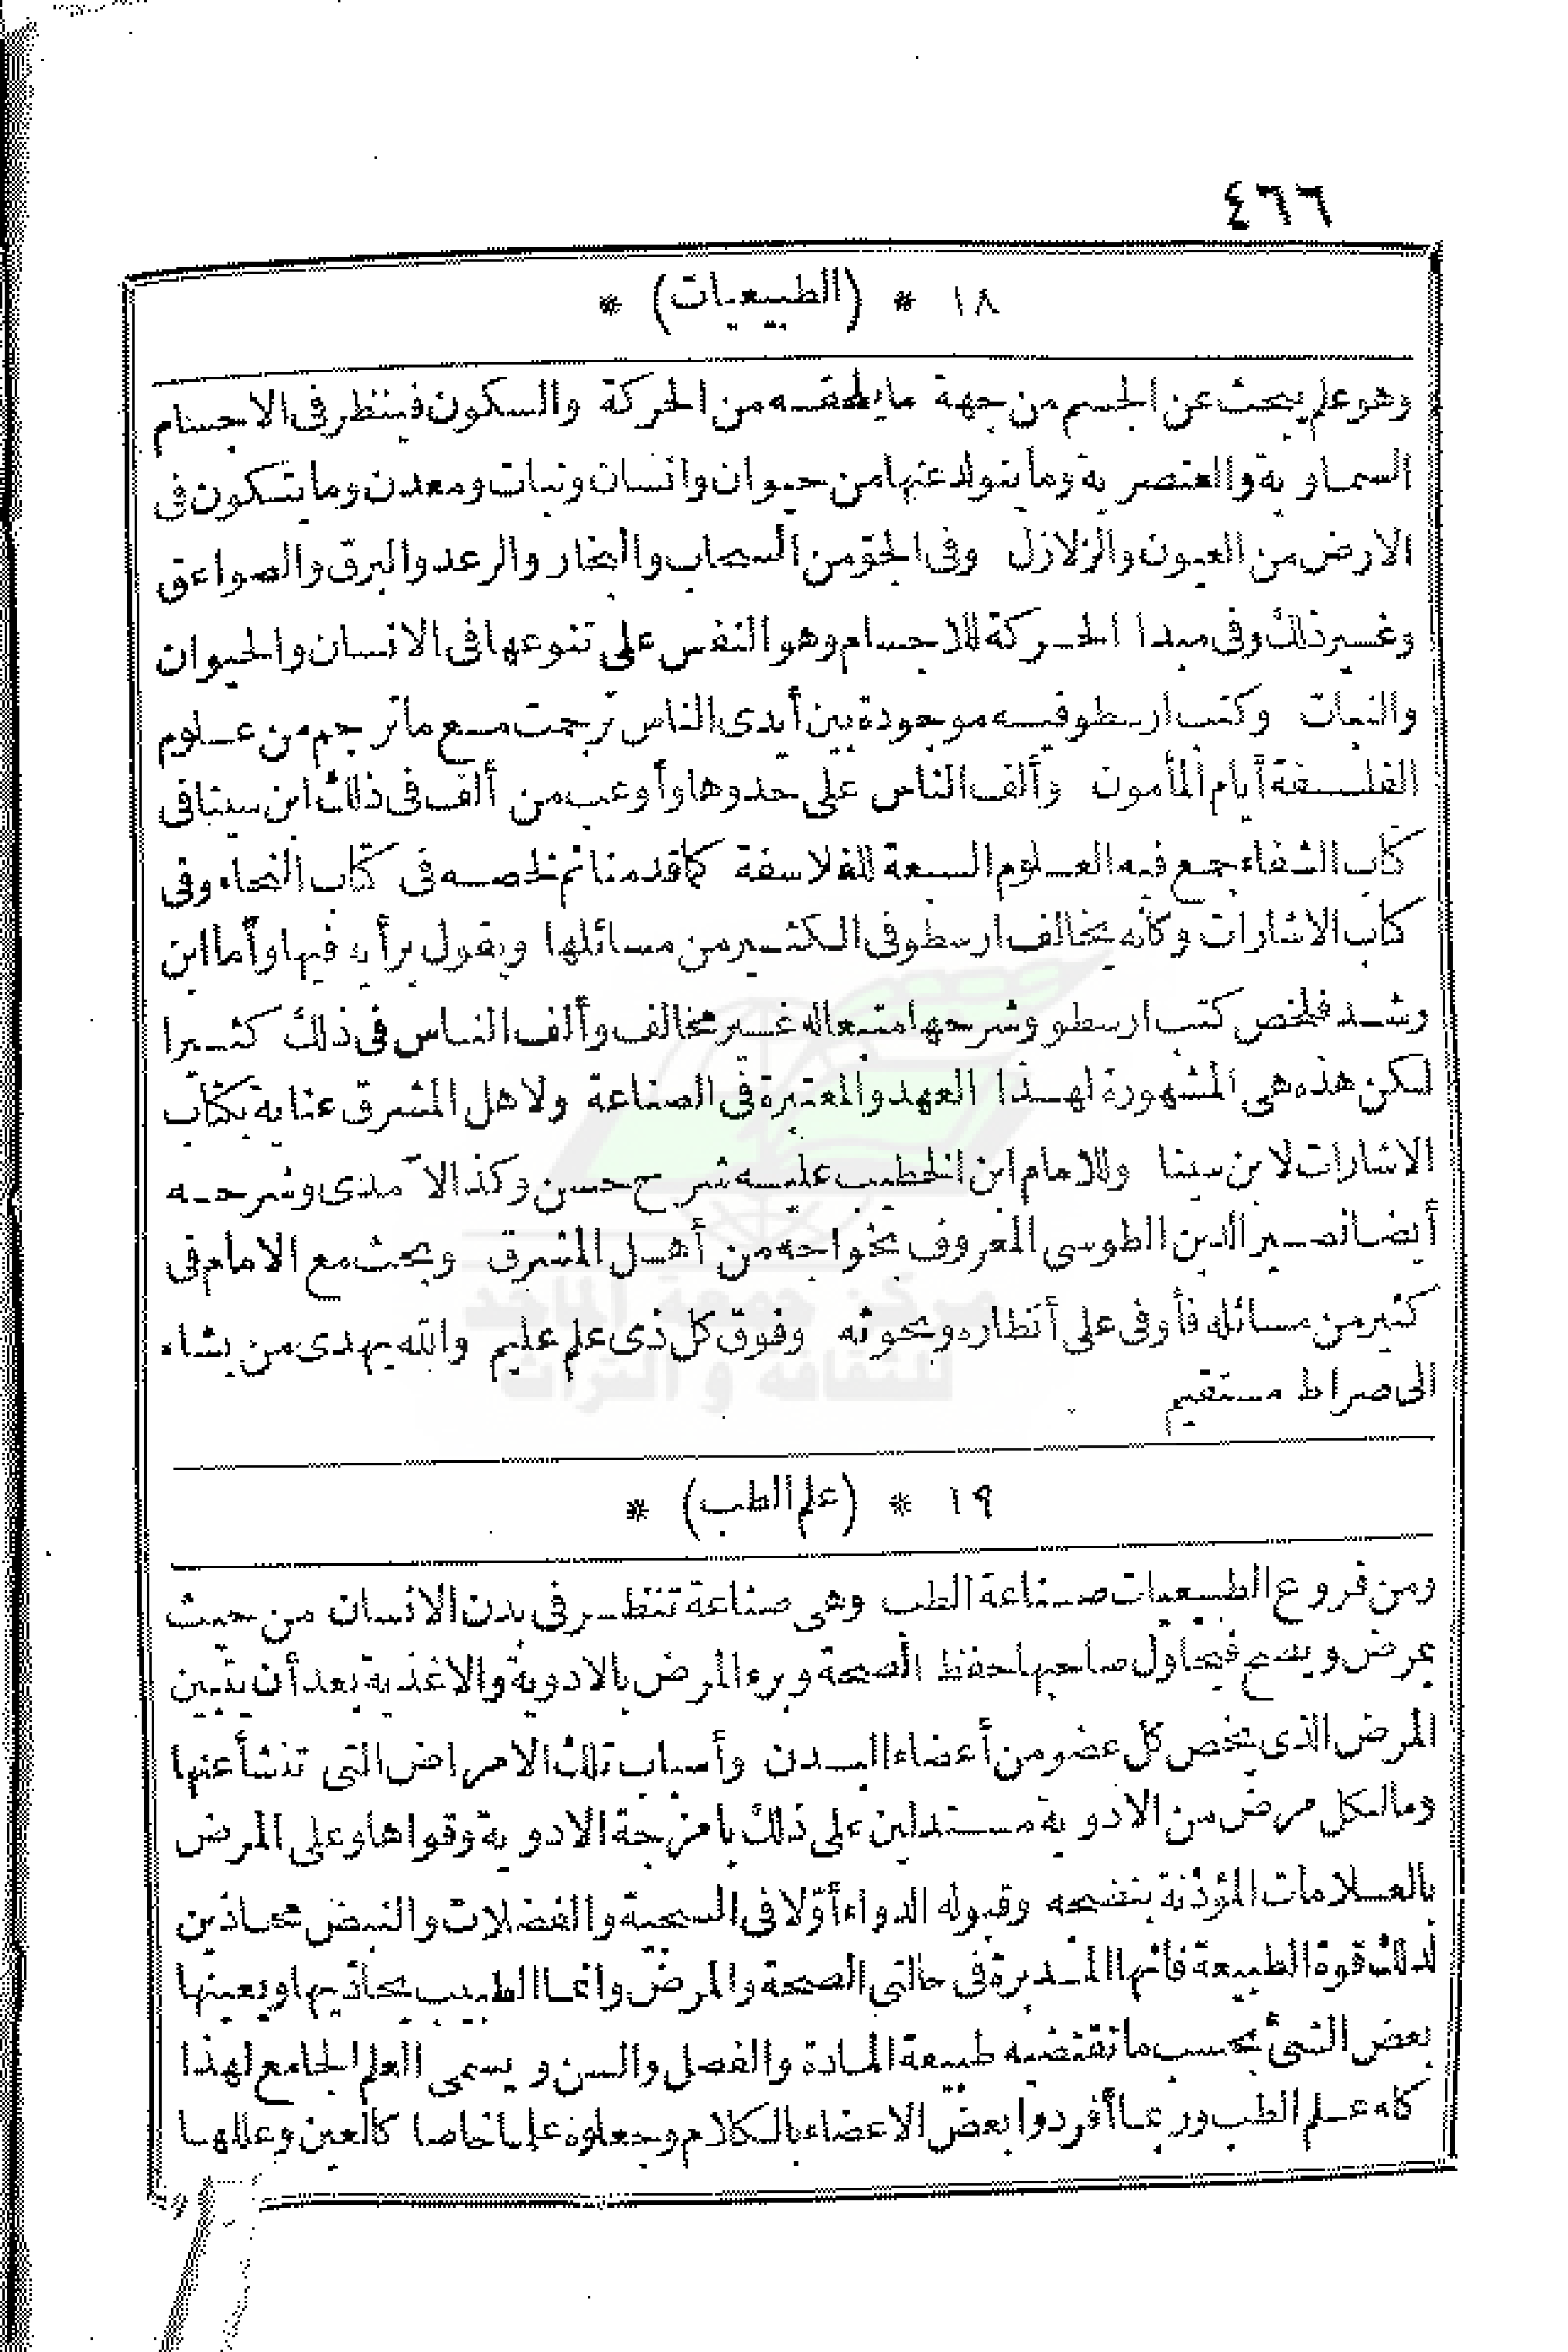 ٤٦٦
١٨ * (الطبيعيات) *
وهو علم يبحث عن الجسم من جهة ما يلحقه من الحركة والسكون فينظر فى الاجسام
السماوية والعنصرية وما يتولد عنها من حيوان وانسان ونبات ومعدن وما يتكون فى
الارض من العيون والزلازل وفى الجوّ من السحاب والبخار والرعد والبرق والصواعق
وغير ذلك وفى مبدا الحركة للاجسام وهو النفس على تنوعها فى الانسان والحيوان
والنبات وكتب ارسطو فيه موجودة بين أيدى الناس ترجمت مع ما ترجم من علوم
الفلسفة أيام المأمون وألف الناس على حدوها وأوعب من ألف فى ذلك ابن سينا فى
كتاب الشفاء جمع فيه العلوم السبعة للفلاسفة كما قدمنا ثم لخصه فى كتاب النجاء وفى
كتاب الاشارات وكأنه يخالف ارسطو فى الكثير من مسائلها ويقول برأيه فيها وأما ابن
رشد فلخص كتب ارسطو وشرحها متبعا له غير مخالف وألف الناس فى ذلك كثيرا
لكن هذه هى المشهورة لهذا العهد والمعتبرة فى الصناعة ولاهل المشرق عناية بكتاب
الاشارات لابن سينا وللامام ابن الخطيب عليه شرح حسن وكذا الآمدى وشرحه
أيضا نصير الدين الطوسى المعروف بخواجه من أهل المشرق وبحث مع الامام فى
كثير من مسائله فأوفى على أنظاره وبحوثه وفوق كل ذى علم عليم والله يهدى من يشاء
الى صراط مستقيم
١٩ * (علم الطب) *
ومن فروع الطبيعيات صناعة الطب وهى صناعة تنظر فى بدن الانسان من حيث
يمرض ويصح فيحاول صاحبها حفظ الصحة وبرء المرض بالادوية والاغذية بعد أن يتبين
المرض الذى يخص كل عضو من أعضاء البدن وأسباب تلك الامراض التى تنشأ عنها
وما لكل مرض من الادوية مستدلين على ذلك بامزجة الادوية وقواها وعلى المرض
بالعلامات المؤذنة بنضجه وقبوله الدواء أوّلا فى السجية والفضلات والنبض محاذين
لذلك قوة الطبيعة فانها المدبرة فى حالتى الصحة والمرض وانما الطبيب يحاذيها ويعينها
بعض الشئ بحسب ما تقتضيه طبيعة المادة والفصل والسن ويسمى العلم الجامع لهذا
كله علم الطب وربما أفردوا بعض الاعضاء بالكلام وجعلوه علما خاصا كالعين وعللها
مركز جمعة الماجد
للثقافة و التراث